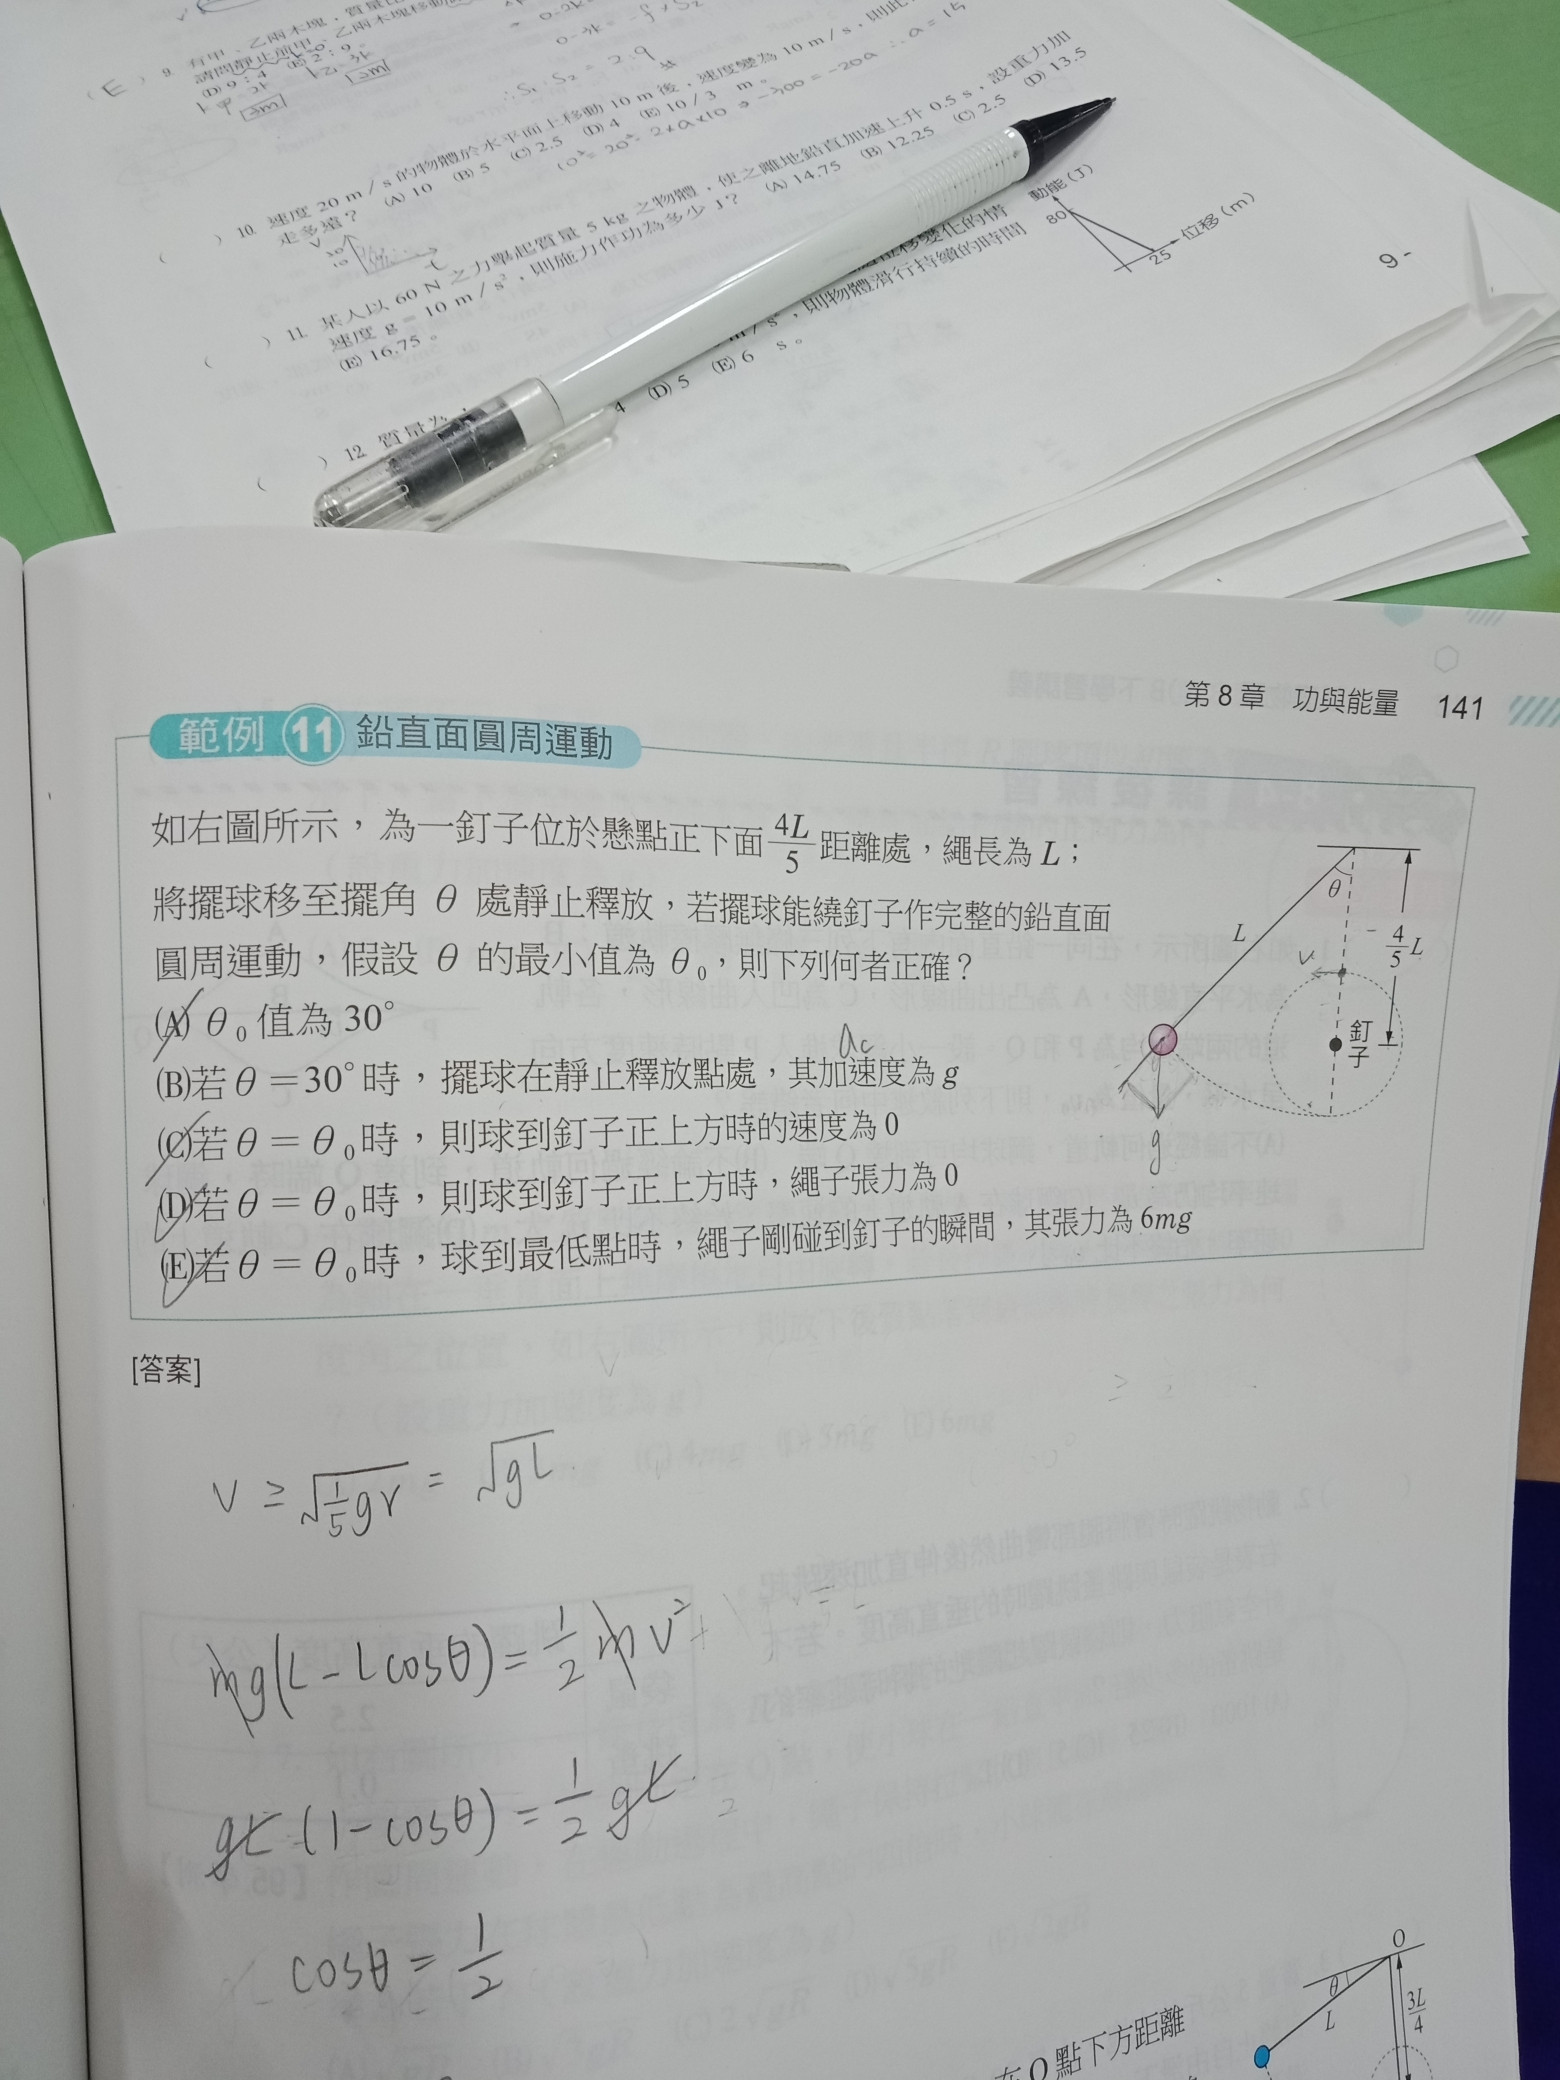 ( E ) 9. 有甲、乙兩木塊,質量比
請問靜止前甲、乙兩木塊移動
(D) 9:4 (E) 2:9。
∴S₁:S₂ = 2:9
( ) 10. 速度 20 m/s 的物體於水平面上移動 10 m 後,速度變為 10 m/s,則此
走多遠? (A) 10 (B) 5 (C) 2.5 (D) 4 (E) 10/3 m。
10² = 20² + 2×a×10 ⇒ -300 = -20a ∴a = 15
( ) 11. 某人以 60 N 之力舉起質量 5 kg 之物體,使之離地鉛直加速上升 0.5 s,設重力加
速度 g = 10 m/s²,則施力作功為多少 J? (A) 14.75 (B) 12.25 (C) 2.5 (D) 13.5
(E) 16.75。
( ) 12. 質量為
位移變化的情
m/s²,則物體滑行持續的時間
4 (D) 5 (E) 6 s。
動能(J)
80
25
位移(m)
9 -
第 8 章 功與能量 141
範例 11 鉛直面圓周運動
如右圖所示,為一釘子位於懸點正下面 4L/5 距離處,繩長為 L;
將擺球移至擺角 θ 處靜止釋放,若擺球能繞釘子作完整的鉛直面
圓周運動,假設 θ 的最小值為 θ₀,則下列何者正確?
(A) θ₀ 值為 30°
(B)若 θ = 30° 時,擺球在靜止釋放點處,其加速度為 g
ac
(C)若 θ = θ₀ 時,則球到釘子正上方時的速度為 0
(D)若 θ = θ₀ 時,則球到釘子正上方時,繩子張力為 0
(E)若 θ = θ₀ 時,球到最低點時,繩子剛碰到釘子的瞬間,其張力為 6mg
θ
L
4/5 L
v
釘子
g
[答案]
v ≥ √(1/5 gr) = √gL
mg(L - Lcosθ) = 1/2 mv²
gL (1-cosθ) = 1/2 gL
cosθ = 1/2
O
θ
L
3L/4
在 O 點下方距離